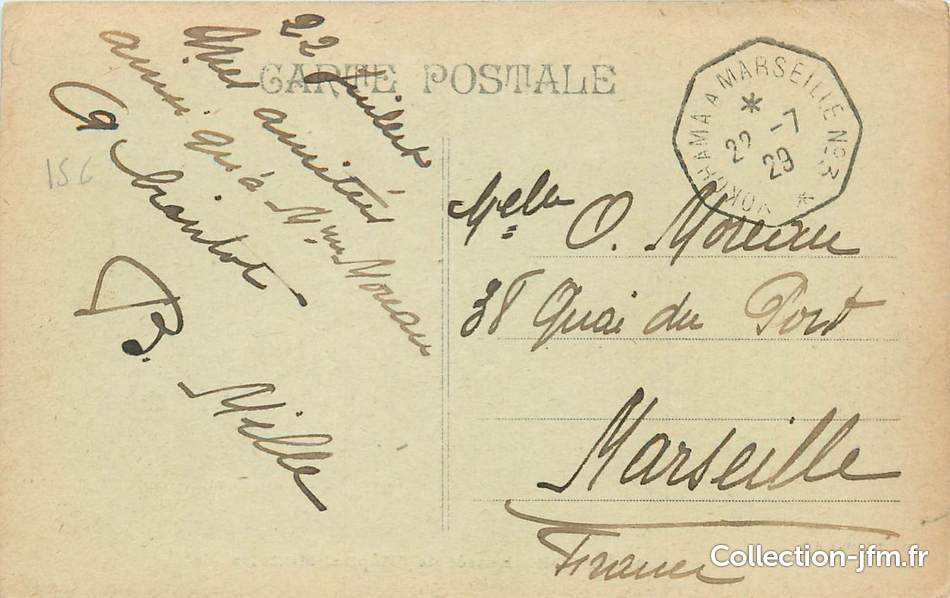 CARTE POSTALE
22 Juillet
Mes amitiés
ainsi qu'à Mme Moreau
à bientôt
B. Mille
156
YOKOHAMA A MARSEILLE No 3
22 -7
29
Melle O. Moreau
38 Quai du Port
Marseille
France
Collection-jfm.fr